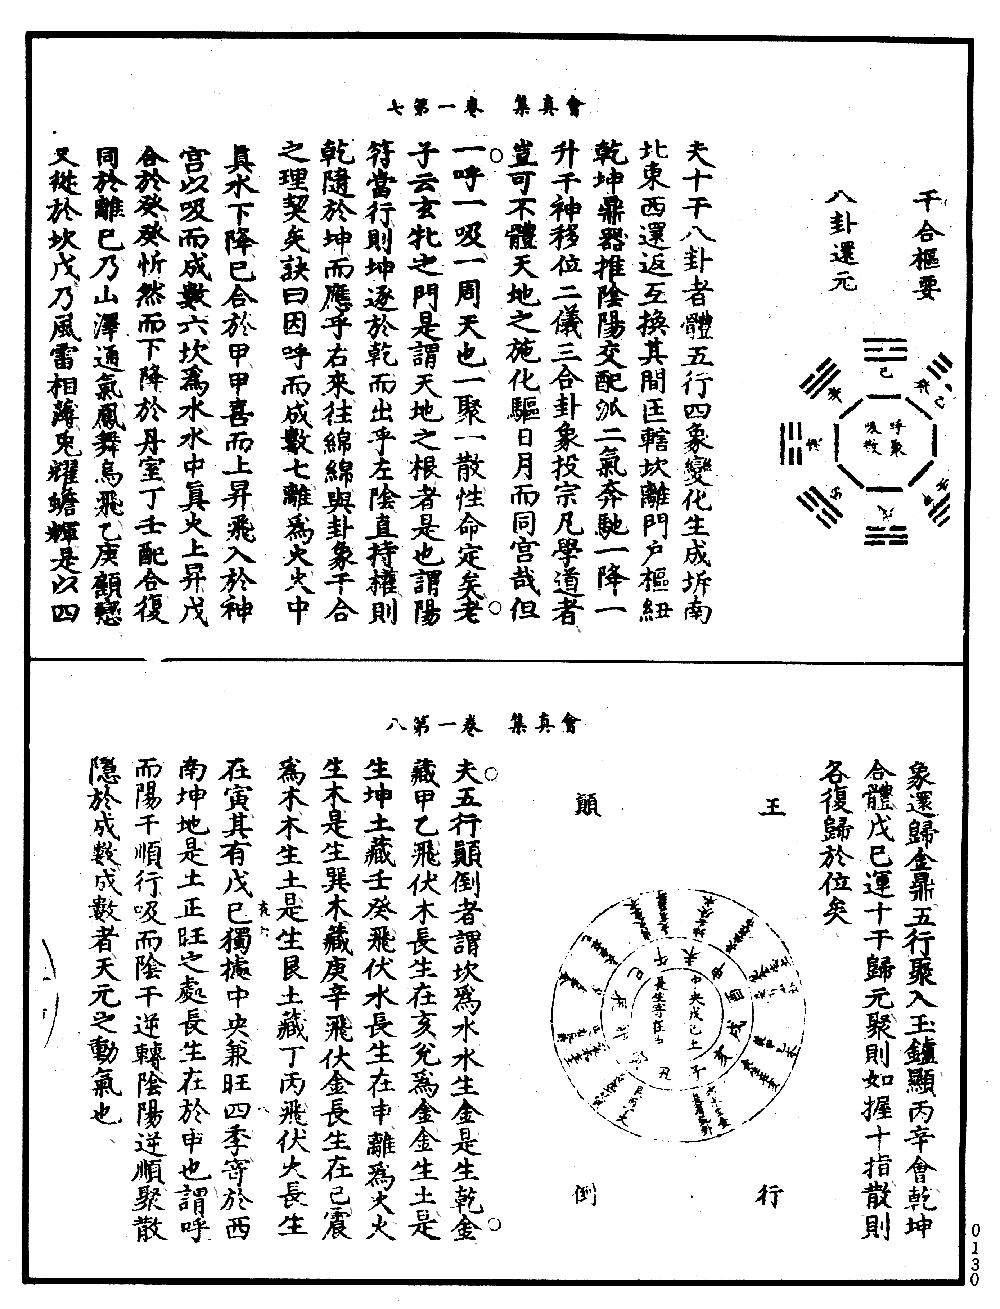 會真集　卷一第七
干合樞要
八卦還元
呼聚
吸散
己
戊
夫十干八卦者體五行四象變化生成坼南
北東西還返互換其間匡轄坎離門户樞紐
乾坤鼎器推陰陽交配派二氣奔馳一降一
升千神移位二儀三合卦象投宗凡學道者
豈可不體天地之施化驅日月而同宫哉但
一呼一吸一周天也一聚一散性命定矣老
子云玄牝之門是謂天地之根者是也謂陽
符當行則坤逐於乾而出乎左陰直持權則
乾隨於坤而應乎右來往綿綿與卦象干合
之理契矣訣曰因呼而成數七離爲火火中
真水下降已合於甲甲喜而上昇飛入於神
宫以吸而成數六坎爲水水中真火上昇戊
合於癸癸忻然而下降於丹室丁壬配合復
同於離巳乃山澤通氣鳳舞烏飛乙庚顧戀
又從於坎戊乃風雷相薄兎耀蟾輝是以四
會真集　卷一第八
象還歸金鼎五行聚入玉鑪顯丙辛會乾坤
合體戊巳運十干歸元聚則如握十指散則
各復歸於位矣
五行
顛倒
中央戊己土
長生寄在
夫五行顛倒者謂坎爲水水生金是生乾金
藏甲乙飛伏木長生在亥兌爲金金生土是
生坤土藏壬癸飛伏水長生在申離爲火火
生木是生巽木藏庚辛飛伏金長生在巳震
爲木木生土是生艮土藏丁丙飛伏火長生
在寅其有戊巳獨據中央兼旺四季寄於西
南坤地是土正旺之處長生在於申也謂呼
而陽干順行吸而陰干逆轉陰陽逆順聚散
隱於成數成數者天元之動氣也
0130